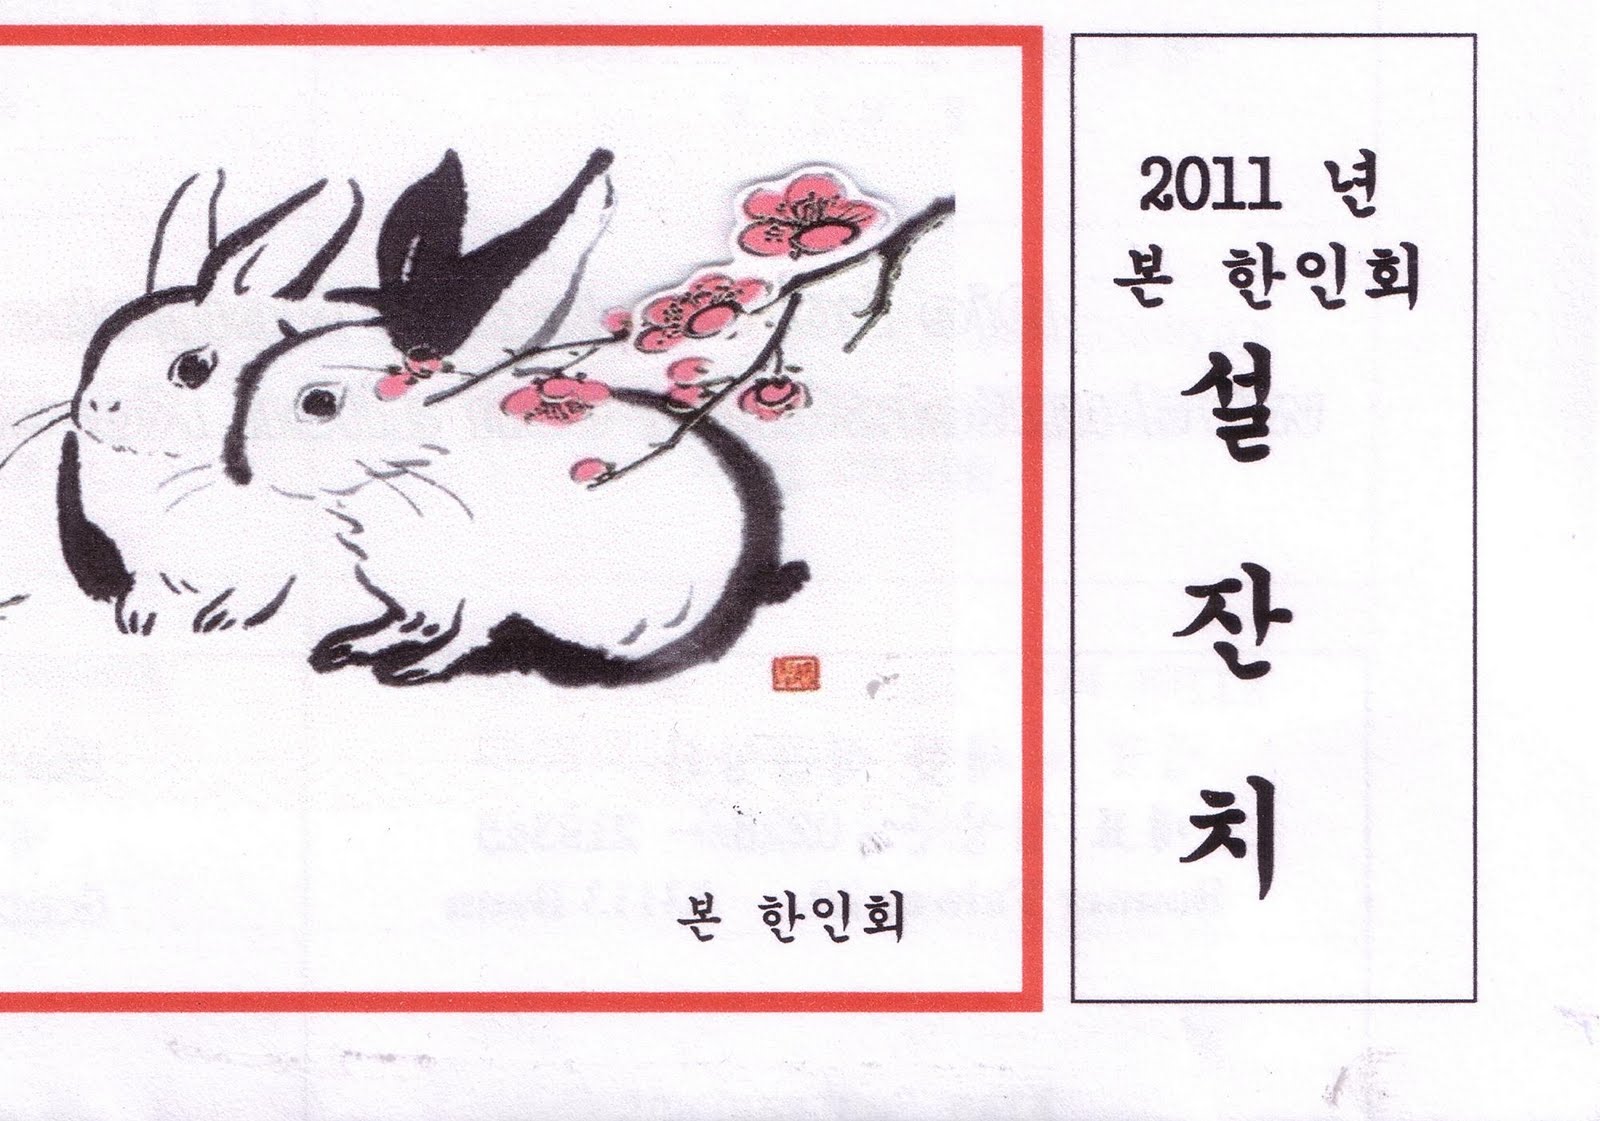 2011 년
본 한인회
설
잔
치
본 한인회